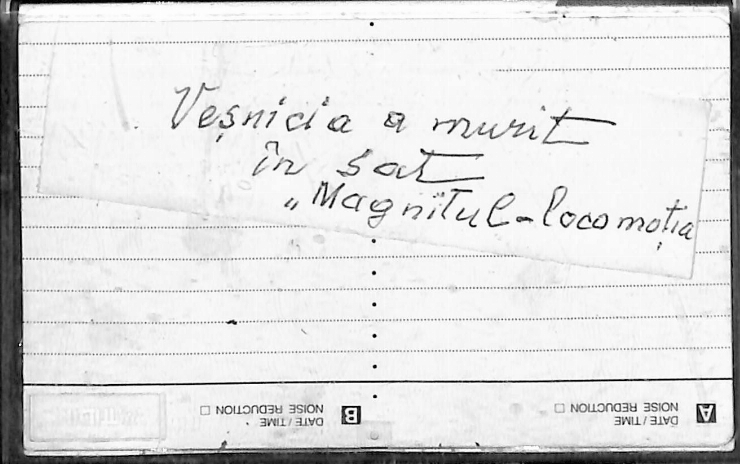 Veșnicia a murit
în sat
„Magnitul-locomoția
B DATE / TIME
NOISE REDUCTION □
A DATE / TIME
NOISE REDUCTION □